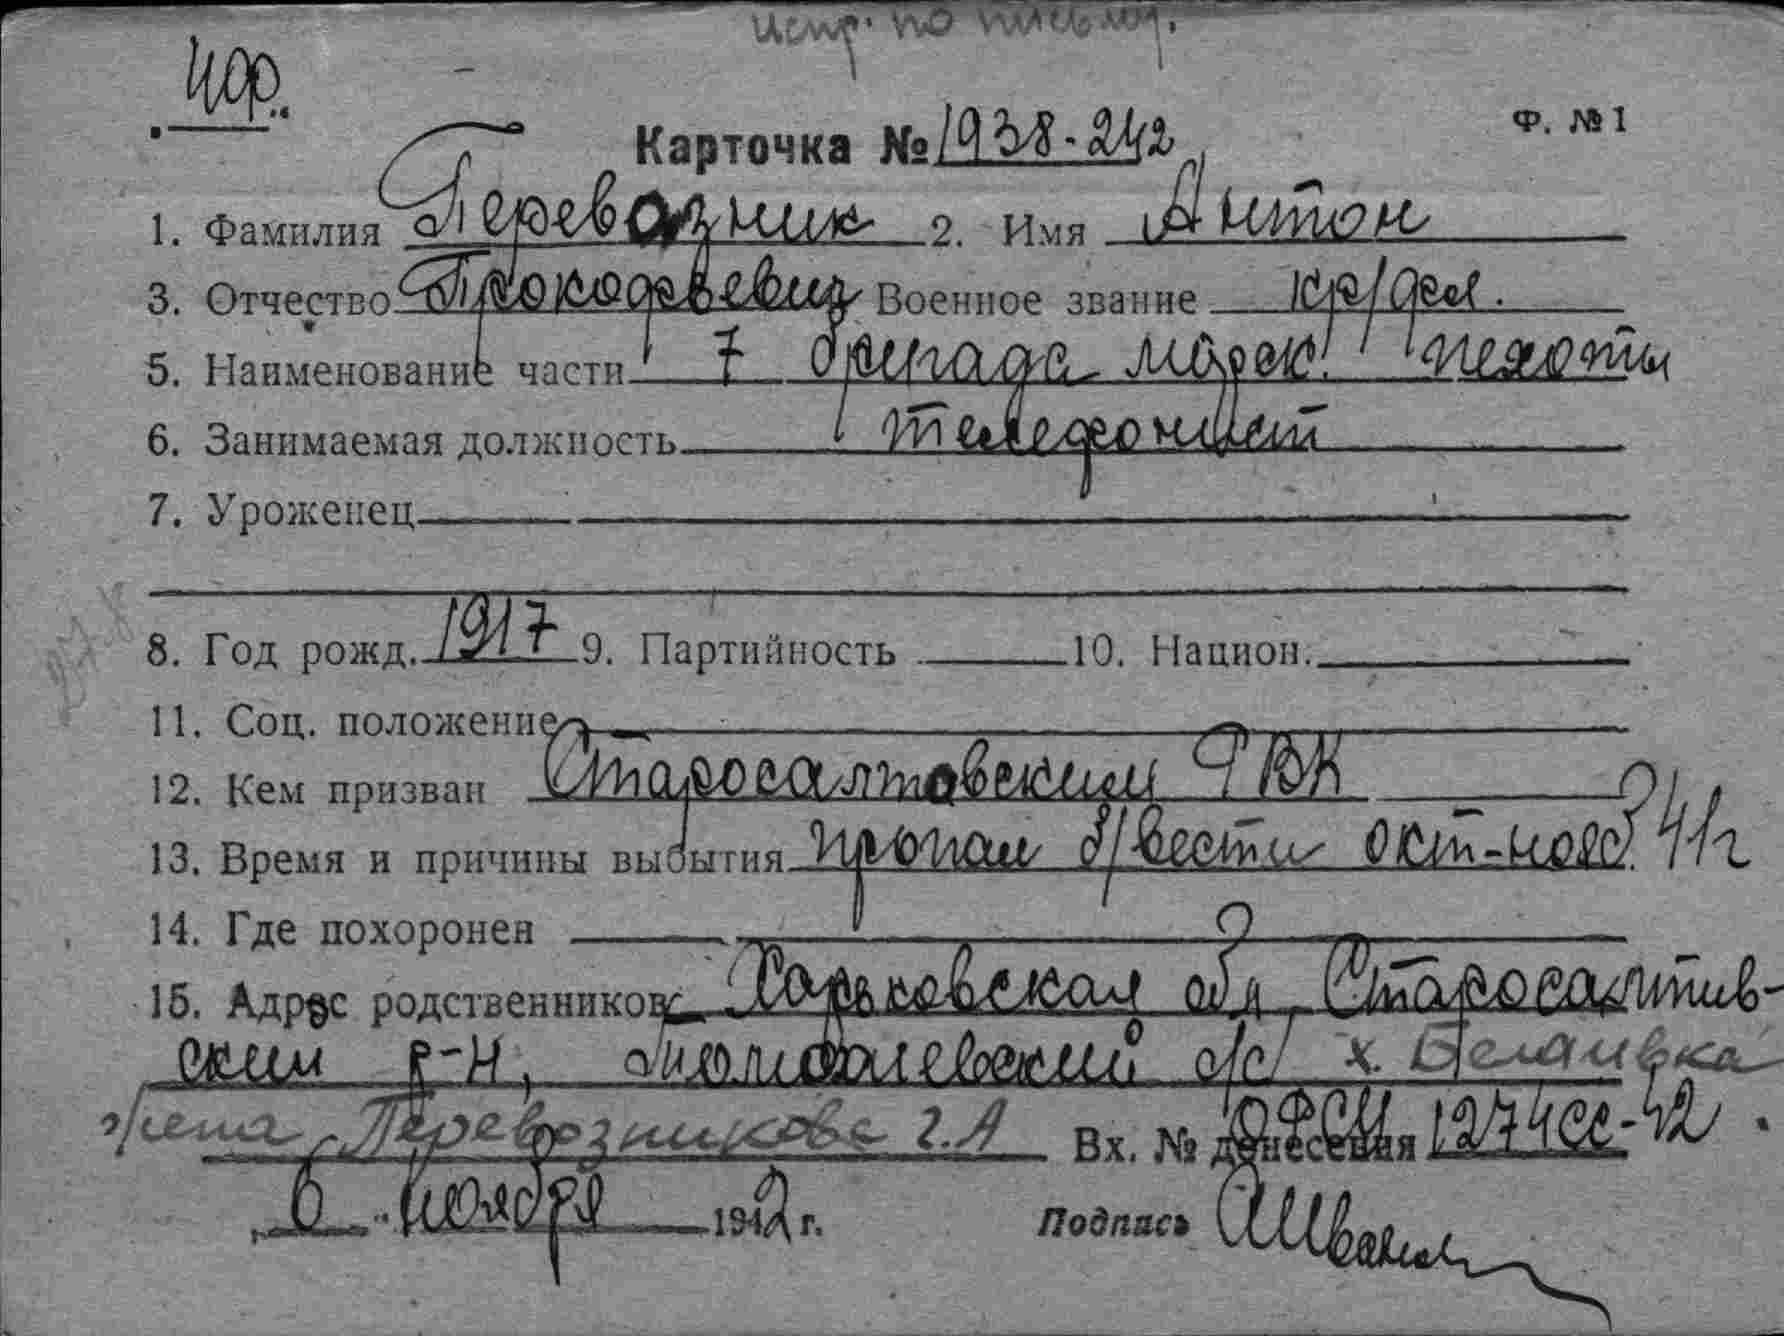 испр. по письму.
Ф. №1
Карточка № 1938-242
1. Фамилия Перевозник 2. Имя Антон
3. Отчество Прокофьевич Военное звание кр/фл.
5. Наименование части 7 бригада морск. пехоты
6. Занимаемая должность телефонист
7. Уроженец
8. Год рожд. 1917 9. Партийность 10. Национ.
11. Соц. положение
12. Кем призван Старосалтовским РВК
13. Время и причины выбытия пропал б/вести окт-нояб. 41г
14. Где похоронен
15. Адрес родственников Харьковская обл, Старосалтив-
ским р-н, с/с х.
жена Перевозникова г.А Вх. № донесения 1274сс-42
6 ноября 1942 г. Подпись